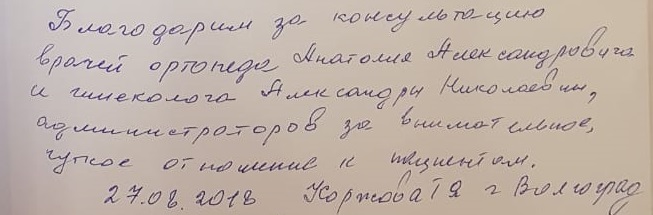 Благодарим за консультацию
врачей ортопеда Анатолия Александровича
и гинеколога Александры Николаевны,
администраторов за внимательное,
чуткое отношение к пациентам.
27.08.2018 Коржова Т Я г Волгоград